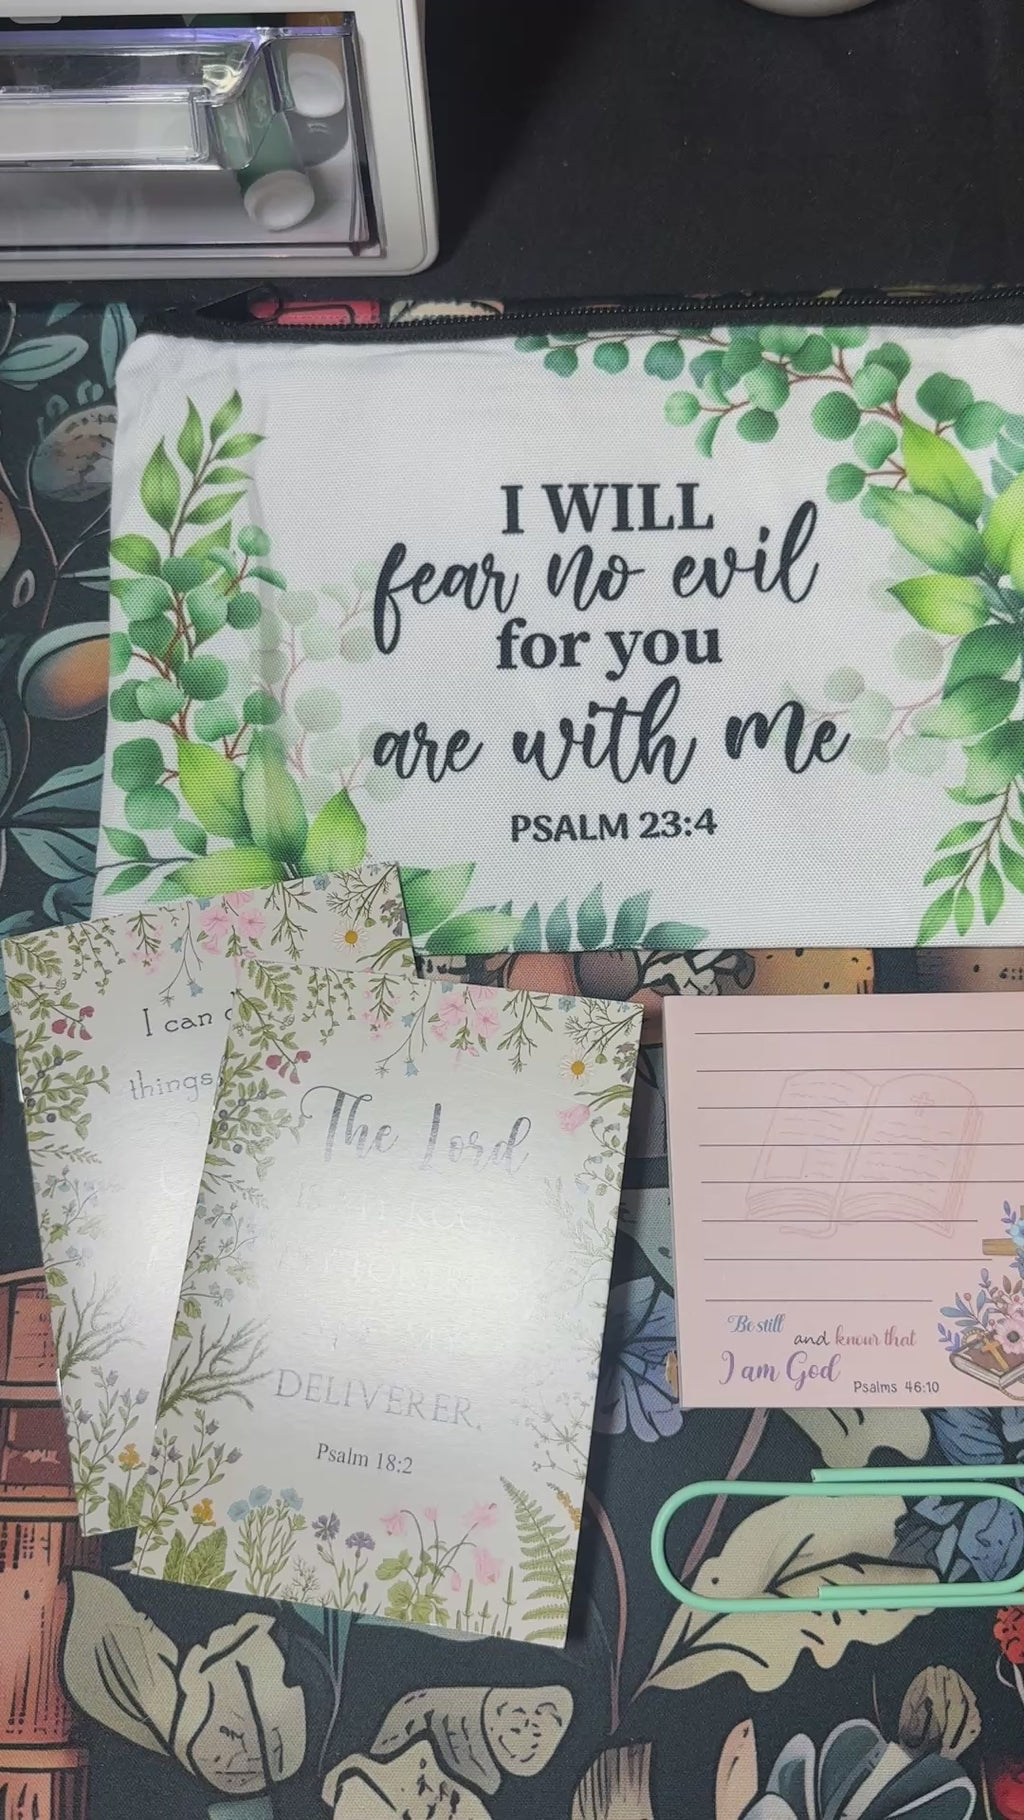 I WILL
fear no evil
for you
are with me
PSALM 23:4
I can
things
The Lord
DELIVERER.
Psalm 18:2
Be still and know that
I am God
Psalms 46:10